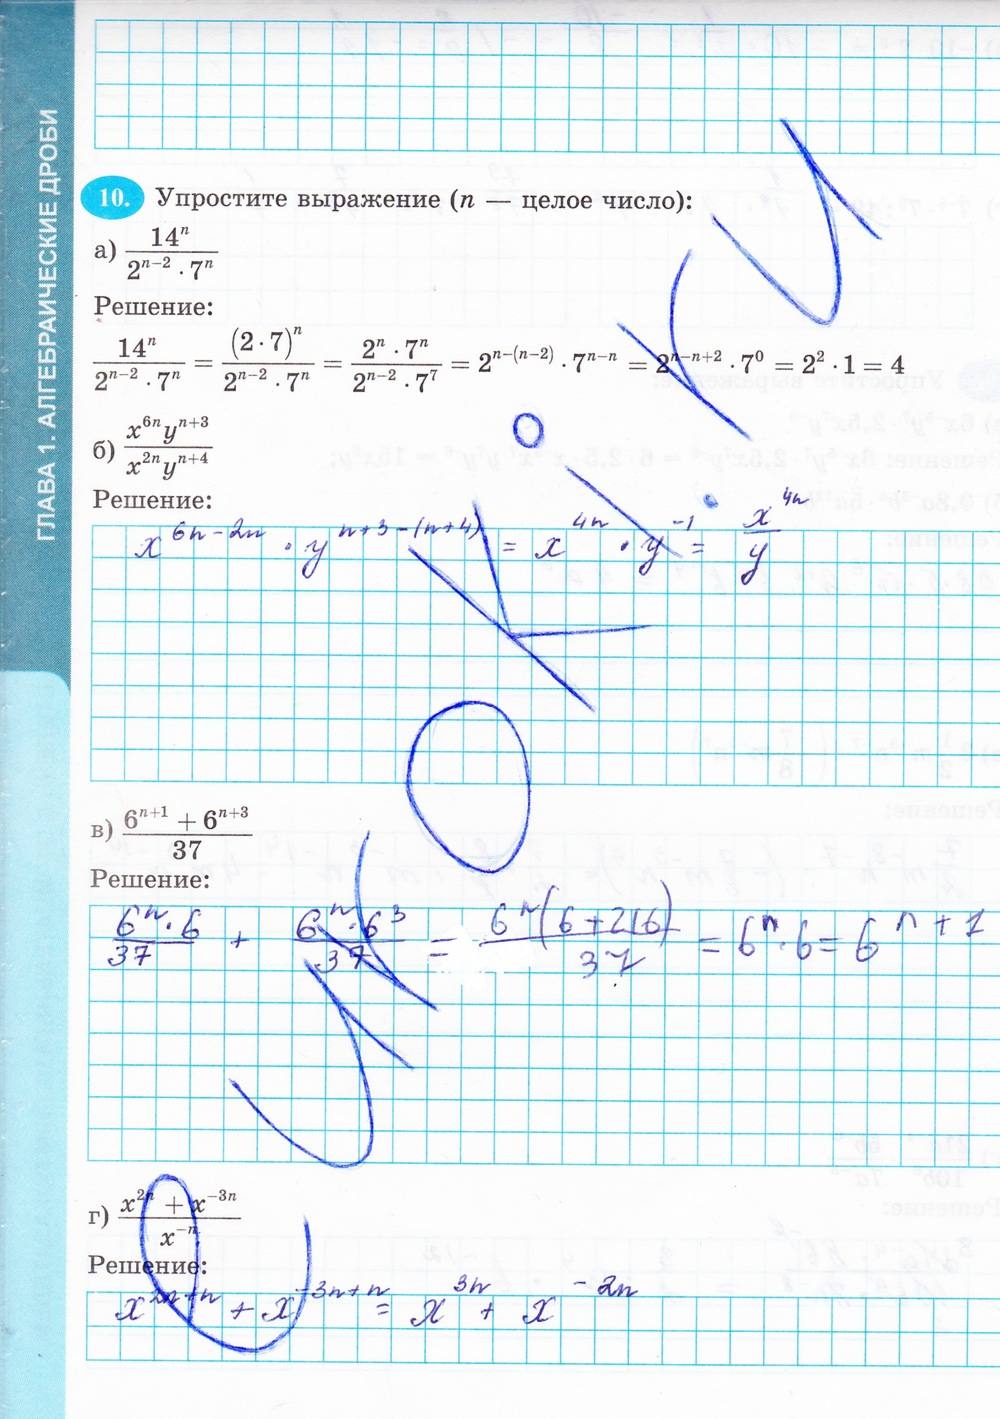 ГЛАВА 1. АЛГЕБРАИЧЕСКИЕ ДРОБИ
10. Упростите выражение (n — целое число):
а) 14^n / (2^(n–2) · 7^n)
Решение:
14^n / (2^(n–2) · 7^n) = (2 · 7)^n / (2^(n–2) · 7^n) = (2^n · 7^n) / (2^(n–2) · 7^7) = 2^(n–(n–2)) · 7^(n–n) = 2^(n–n+2) · 7^0 = 2^2 · 1 = 4
б) (x^(6n) y^(n+3)) / (x^(2n) y^(n+4))
Решение:
x^(6n-2n) · y^(n+3-(n+4)) = x^(4n) · y^(-1) = x^(4n) / y
в) (6^(n+1) + 6^(n+3)) / 37
Решение:
(6^n · 6) / 37 + (6^n · 6^3) / 37 = 6^n (6+216) / 37 = 6^n · 6 = 6^(n+1)
г) (x^(2n) + x^(–3n)) / x^(–n)
Решение:
x^(2n+n) + x^(-3n+n) = x^(3n) + x^(-2n)